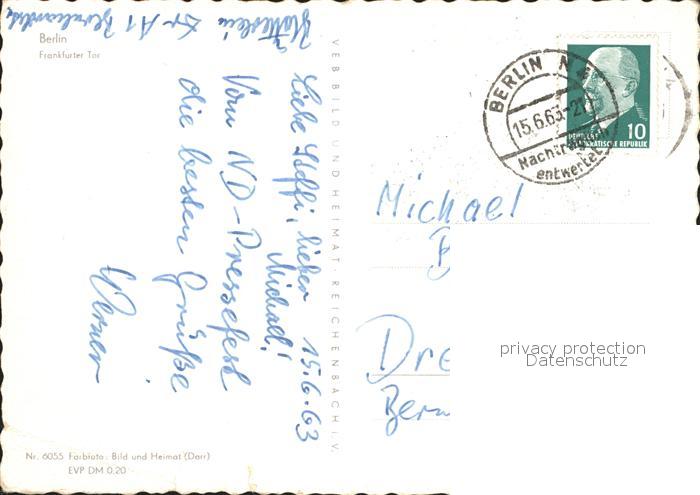 Berlin
Frankfurter Tor
Liebe Steffi, lieber
Michael!
15.6.63
Vom ND-Pressefest
die besten Grüße
Werner
VEB BILD UND HEIMAT · REICHENBACH i. V.
BERLIN N 4
15.6.63-21
Nachträglich
entwertet
DEUTSCHE
DEMOKRATISCHE REPUBLIK
10
Michael
B
Dre
Bern
privacy protection
Datenschutz
Nr. 6055 Farbfoto: Bild und Heimat (Darr)
EVP DM 0,20